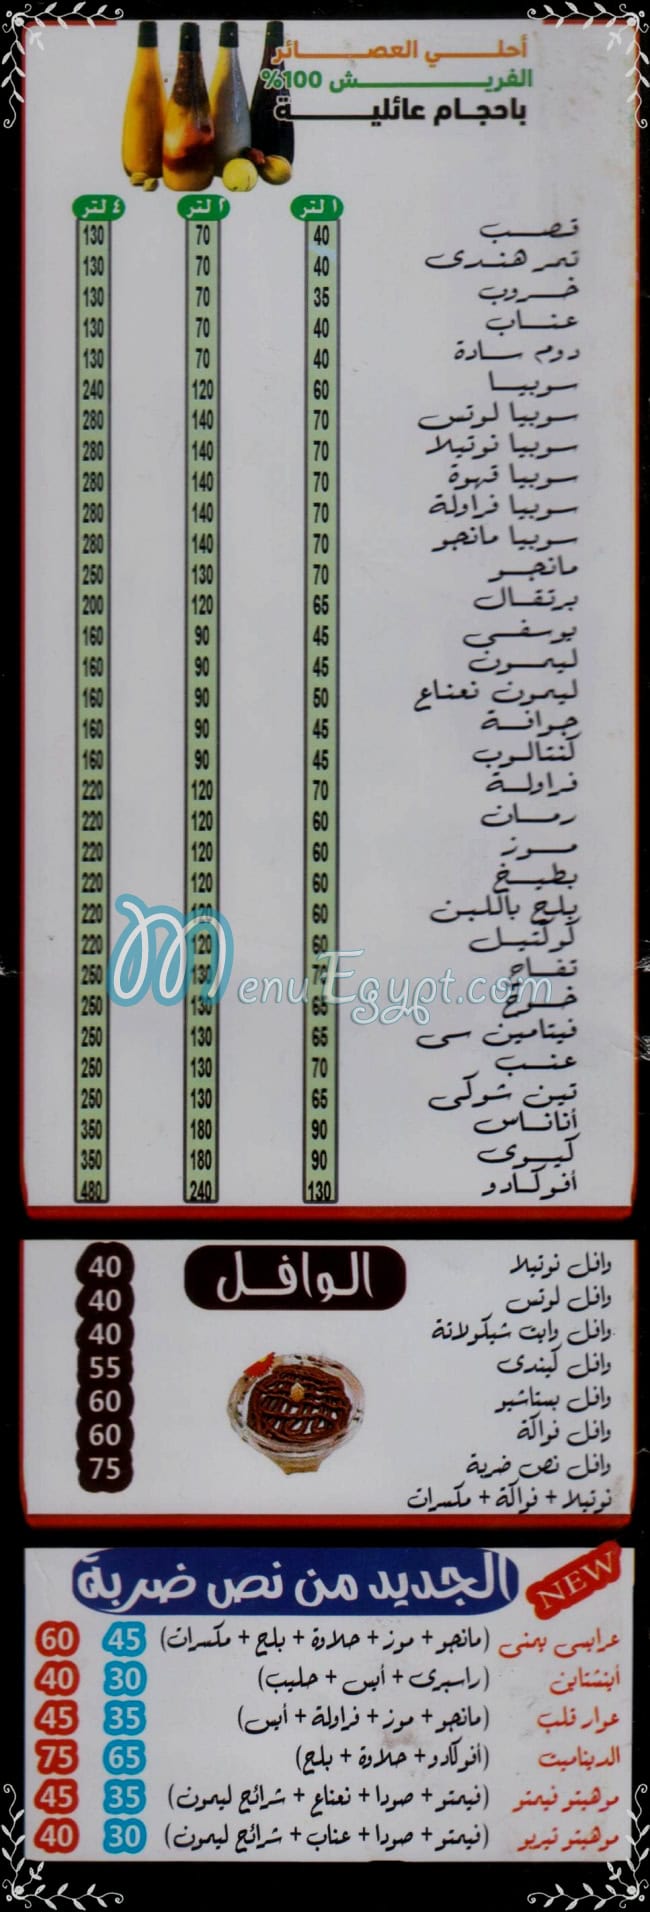 أحلــي العصــائر
الفريــش 100%
باحجــام عائليــة
١ لتر ٢ لتر ٤ لتر
قصـب 40 70 130
تمر هنـدى 40 70 130
خـروب 35 70 130
عنـاب 40 70 130
دوم سـادة 40 70 130
سوبيـا 60 120 240
سوبيا لوتس 70 140 280
سوبيا نوتيلا 70 140 280
سوبيا قهوة 70 140 280
سوبيا فراولة 70 140 280
سوبيا مانجو 70 140 280
مانجـو 70 130 250
برتقـال 65 120 200
يوسفـى 45 90 160
ليمـون 45 90 160
ليمون نعناع 50 90 160
جوافـة 45 90 160
كنتالـوب 45 90 160
فراولـة 70 120 220
رمـان 60 120 220
مـوز 60 120 220
بطيـخ 60 120 220
بلح باللبن 60 120 220
كوكتيـل 60 120 220
تفـاح 70 130 250
خـوخ 65 130 250
فيتامين سى 65 130 250
عنـب 70 130 250
تين شوكى 65 130 250
أناناس 90 180 350
كيـوى 90 180 350
أفوكادو 130 240 480
MenuEgypt.com
الوافـل
وافل نوتيلا 40
وافل لوتس 40
وافل وايت شيكولاتة 40
وافل كيندى 55
وافل بستاشيو 60
وافل فواكة 60
وافل نص ضربة 75
نوتيلا + فواكة + مكسرات
NEW
الجديد من نص ضربة
عرايسى يمنى (مانجو + موز + حلاوة + بلح + مكسرات) 45 60
أينشتاين (راسبرى + أيس + حليب) 30 40
عوار قلب (مانجو + موز + فراولة + أيس) 35 45
الديناميت (أفوكادو + حلاوة + بلح) 65 75
موهيتو فيمتو (فيمتو + صودا + نعناع + شرائح ليمون) 35 45
موهيتو تيربو (فيمتو + صودا + عناب + شرائح ليمون) 30 40